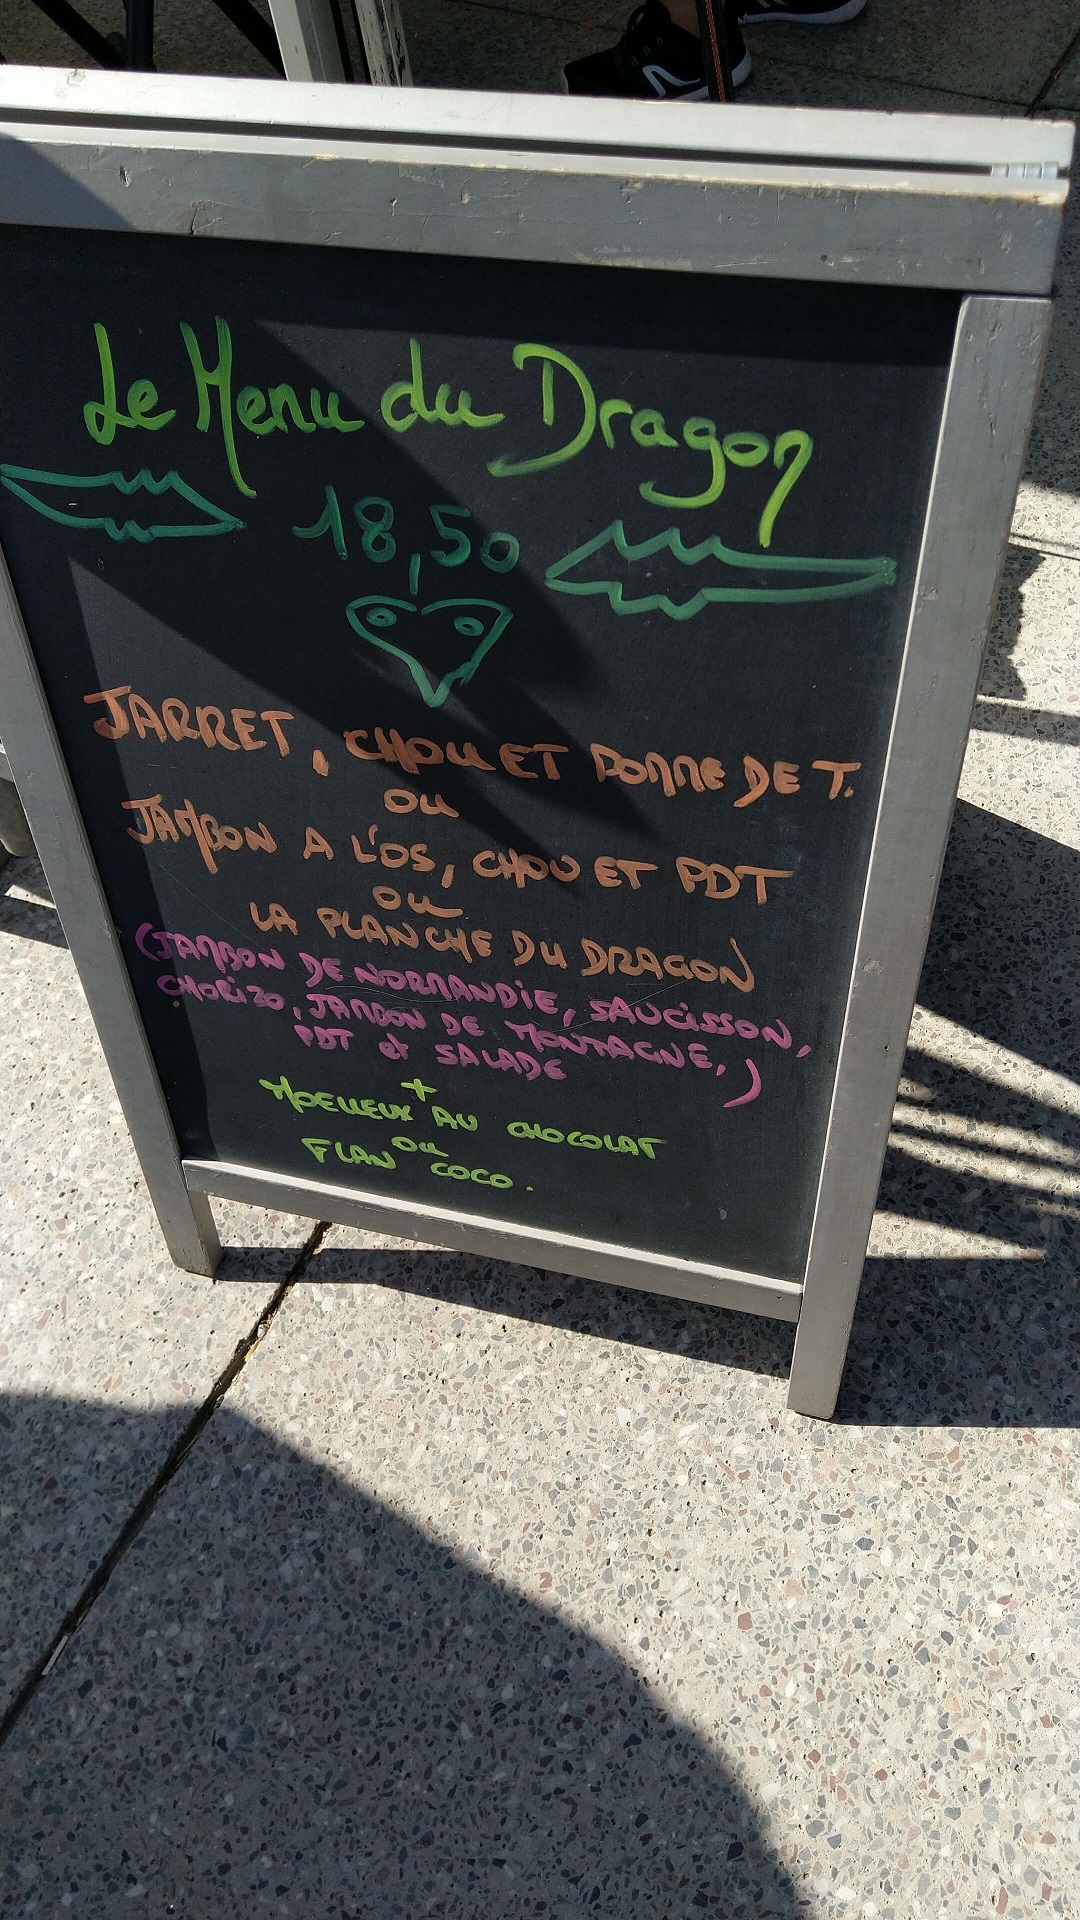 Le Menu du Dragon
18,50
JARRET, CHOU ET POMME DE T.
OU
JAMBON A L'OS, CHOU ET PDT
OU
LA PLANCHE DU DRAGON
(JAMBON DE NORMANDIE, SAUCISSON,
CHORIZO, JAMBON DE MONTAGNE,
PDT et SALADE)
+
MOELLEUX AU CHOCOLAT
OU
FLAN COCO.